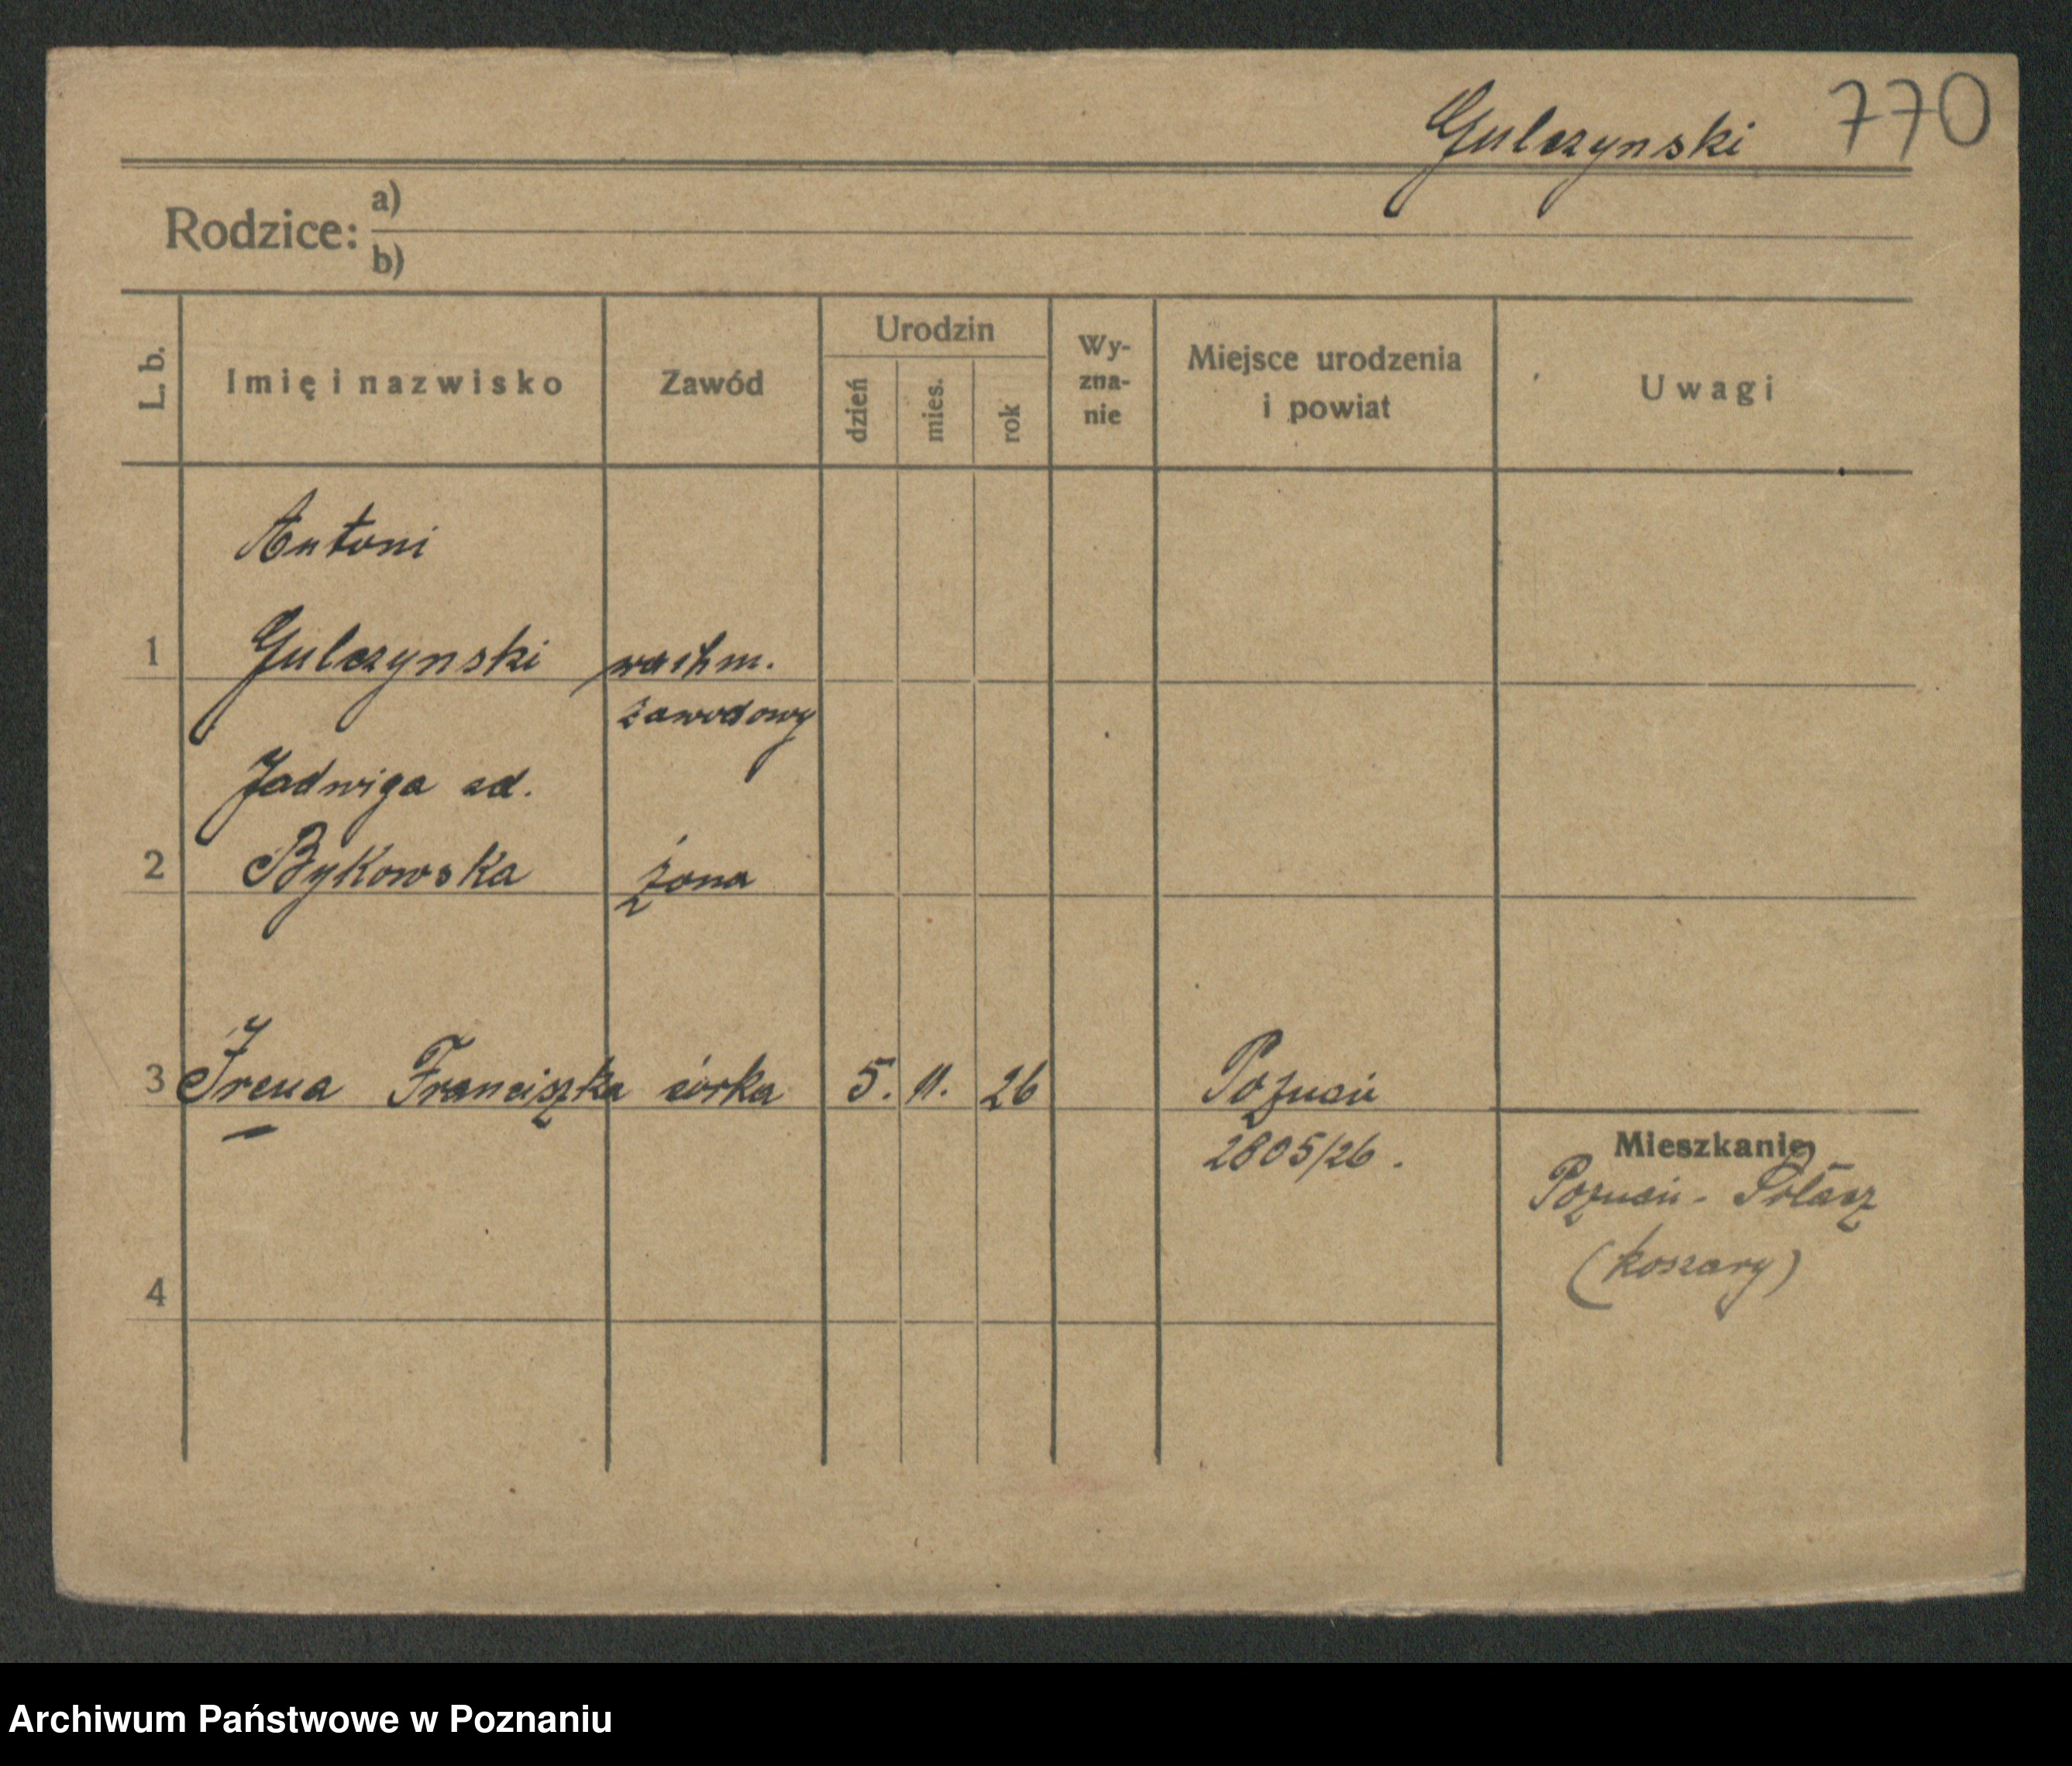 Gulczynski 770
Rodzice: a)
b)
L. b. Imię i nazwisko Zawód Urodzin dzień mies. rok Wy-zna-nie Miejsce urodzenia i powiat Uwagi
Antoni
1 Gulczynski wachm.
zawodowy
Jadwiga zd.
2 Bykowska żona
3 Irena Franciszka córka 5. 11. 26 Poznań
2805/26.
Mieszkanie
Poznań - Sołacz
(koszary)
4
Archiwum Państwowe w Poznaniu